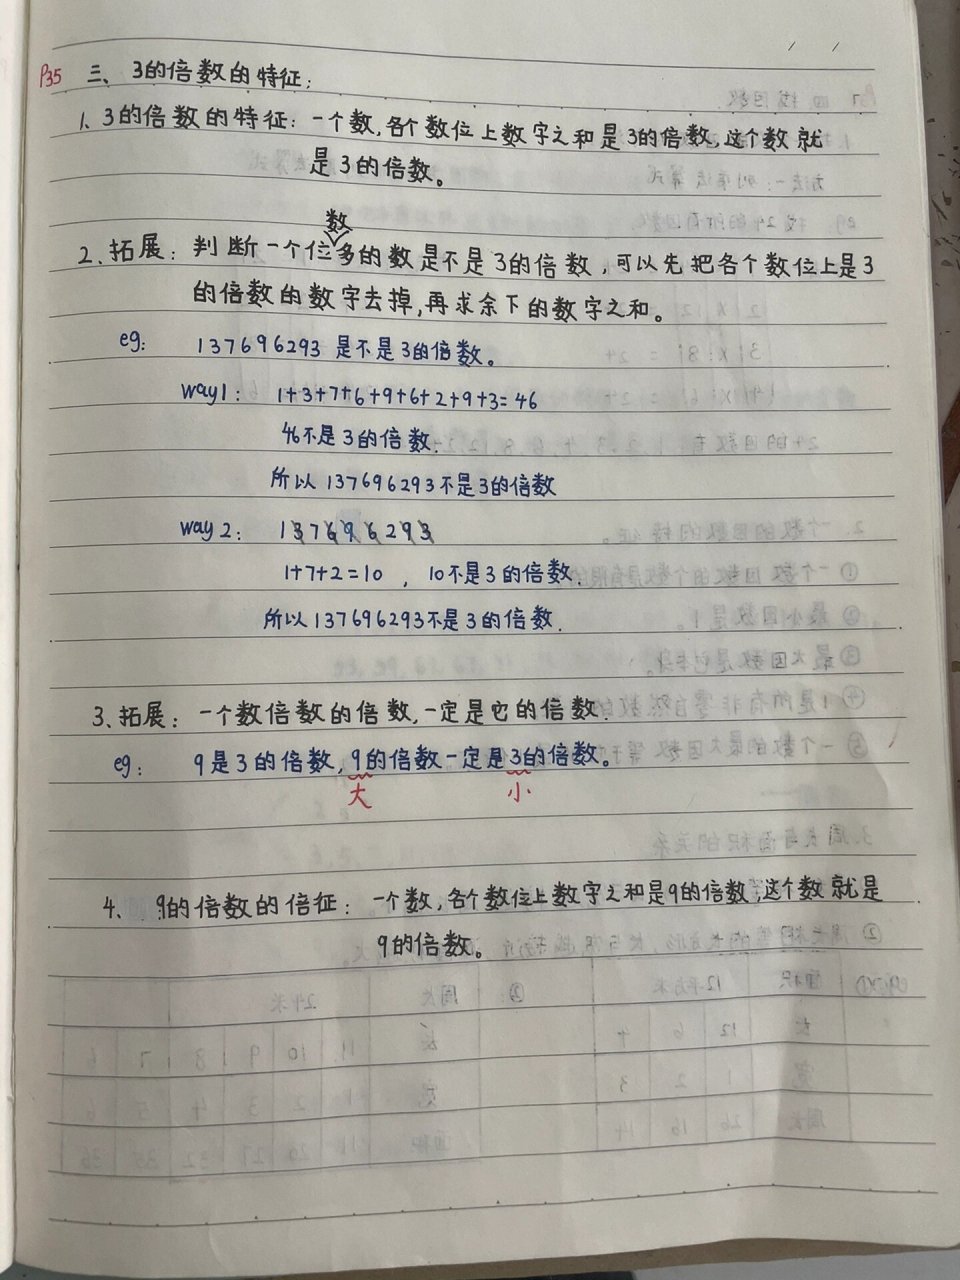 P35 三、3的倍数的特征:
1、3的倍数的特征: 一个数,各个数位上数字之和是3的倍数,这个数就
是3的倍数。
2、拓展: 判断一个位数多的数是不是3的倍数,可以先把各个数位上是3
的倍数的数字去掉,再求余下的数字之和。
eg: 137696293 是不是3的倍数。
way1: 1+3+7+6+9+6+2+9+3=46
46不是3的倍数.
所以137696293不是3的倍数
way2: 137696293
1+7+2=10 , 10不是3的倍数.
所以137696293不是3的倍数.
3、拓展: 一个数倍数的倍数,一定是它的倍数.
eg: 9是3的倍数,9的倍数一定是3的倍数。
大 小
4、9的倍数的倍征: 一个数,各个数位上数字之和是9的倍数,这个数就是
9的倍数。